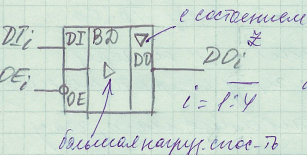 с состоением
Z
DI_i DI BD ▽ DO DO_i
OE_i OE ▷
i = 1÷4
большая нагруз. спос-ть